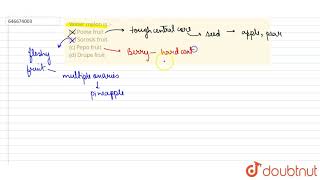 646674003
Water melon is
(a) Pome fruit → tough central core → seed → apple, pear
(b) Sorosis fruit
(c) Pepo fruit → Berry - hard coat
(d) Drupe fruit
fleshy
fruit - multiple ovaries
↓
pineapple
doubtnut